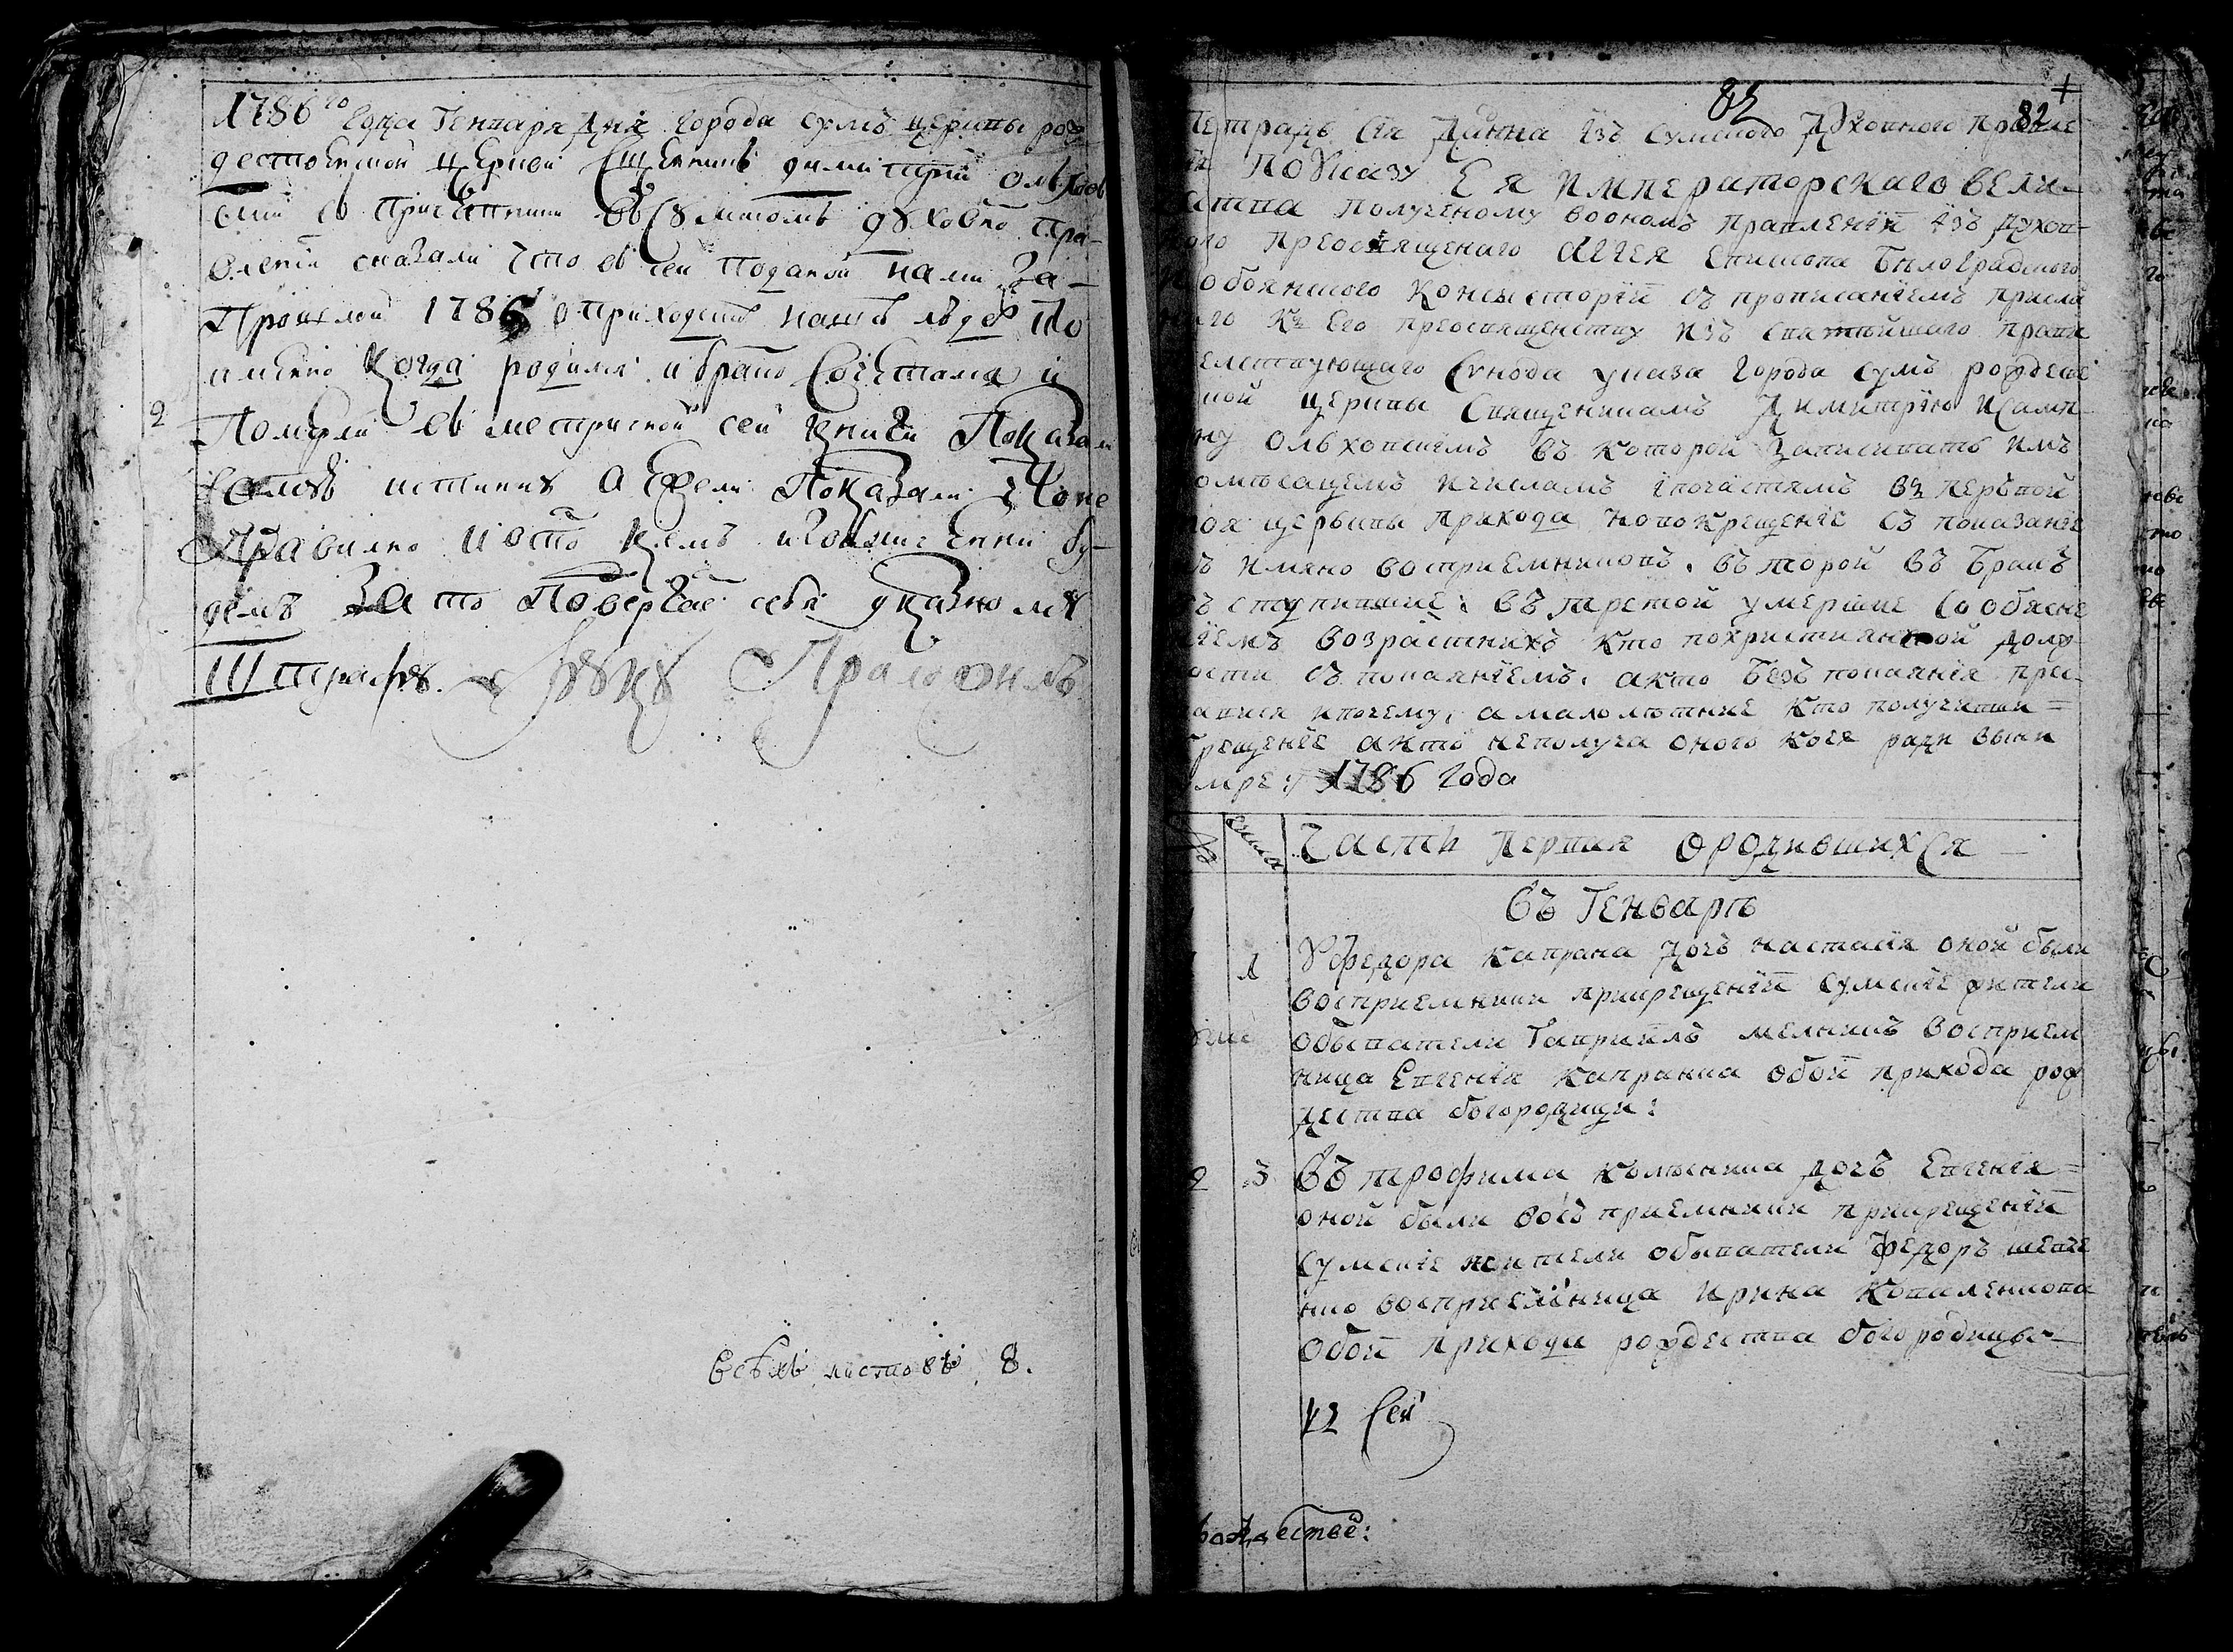 1786го Года Генваря дня города сумъ церкви рож
дественской церкви Сщенникъ димитрий олхов
ский с причетники въ сумскомъ духовно пра-
влении сказали что в сей поданой нами за
Прошлой 1786 о приходств нашей людех По
имянно когда родился и брако Сочетался и
Померли в метрической сей книги Показали
самую истинну а Ежели Показали Что не
Правилно и в то кемъ изобличенни бу-
демъ За то Повергаем себя указному
Штрафу. руку Приложилъ
Всѣхъ листовъ 8.
82
82
Тетрадь сія Данна изъ Сумского Духовного правле
ія По Указу Ея императорскаго вели-
ства полученому воономъ правленіи изъ Духов-
ного преосвященаго Аггея Епископа Бѣлоградского
и обоянского Консисторіи съ прописаніемъ присла
ного Къ Его преосвященству изъ Святѣйшаго прави
телствующаго Сунода указа Города Сумъ рождеве
ской церкви Священникамъ Димитрію исамп-
ну ольховскимъ въ которой Записивать имъ
помѣсяцемъ ичисламъ ипочастямъ въ первой
тоя церкви прихода новокрещеніе съ показание
мъ имяно восприемниковъ. въ торой въ бракъ
въступившие: въ третой умершие со обясне
ніемъ возрастнихъ кто похристианской долж
ости съ покаяніемъ. акто безъ покаянія прес-
тавися ипочему, а малолѣтние кто получивши
Крещеніе акто неполуча оного коея ради вини
умре: 1786 Года
числа
Части Первая ородившихся
Въ Генварѣ
1 Уфедора Капрана дочъ настасія оной были
восприемники прикрещеніи сумскіе жители
обыватели Гавріилъ мелникъ восприем
ница Евгенія Капранка обои прихода рож
дества богородици:
2 3 Въ трофима Колѣсника дочъ Евгенія
оной были восъ приемники прикрещеніи
Сумскіе жители обыватели Федоръ шевче
нко восприемница ирина Коваленкова
обои прихода рождества богородицы
Къ сей
рождестве: